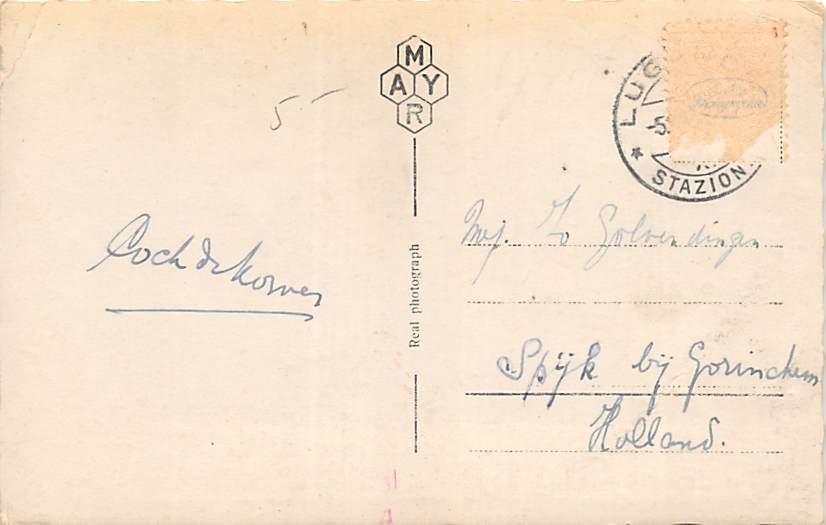 MAYR
5-
LUG
-5.
* STAZION
Real photograph
Mej. Zo Golverdingen
Spijk bij Gorinchem
Holland.